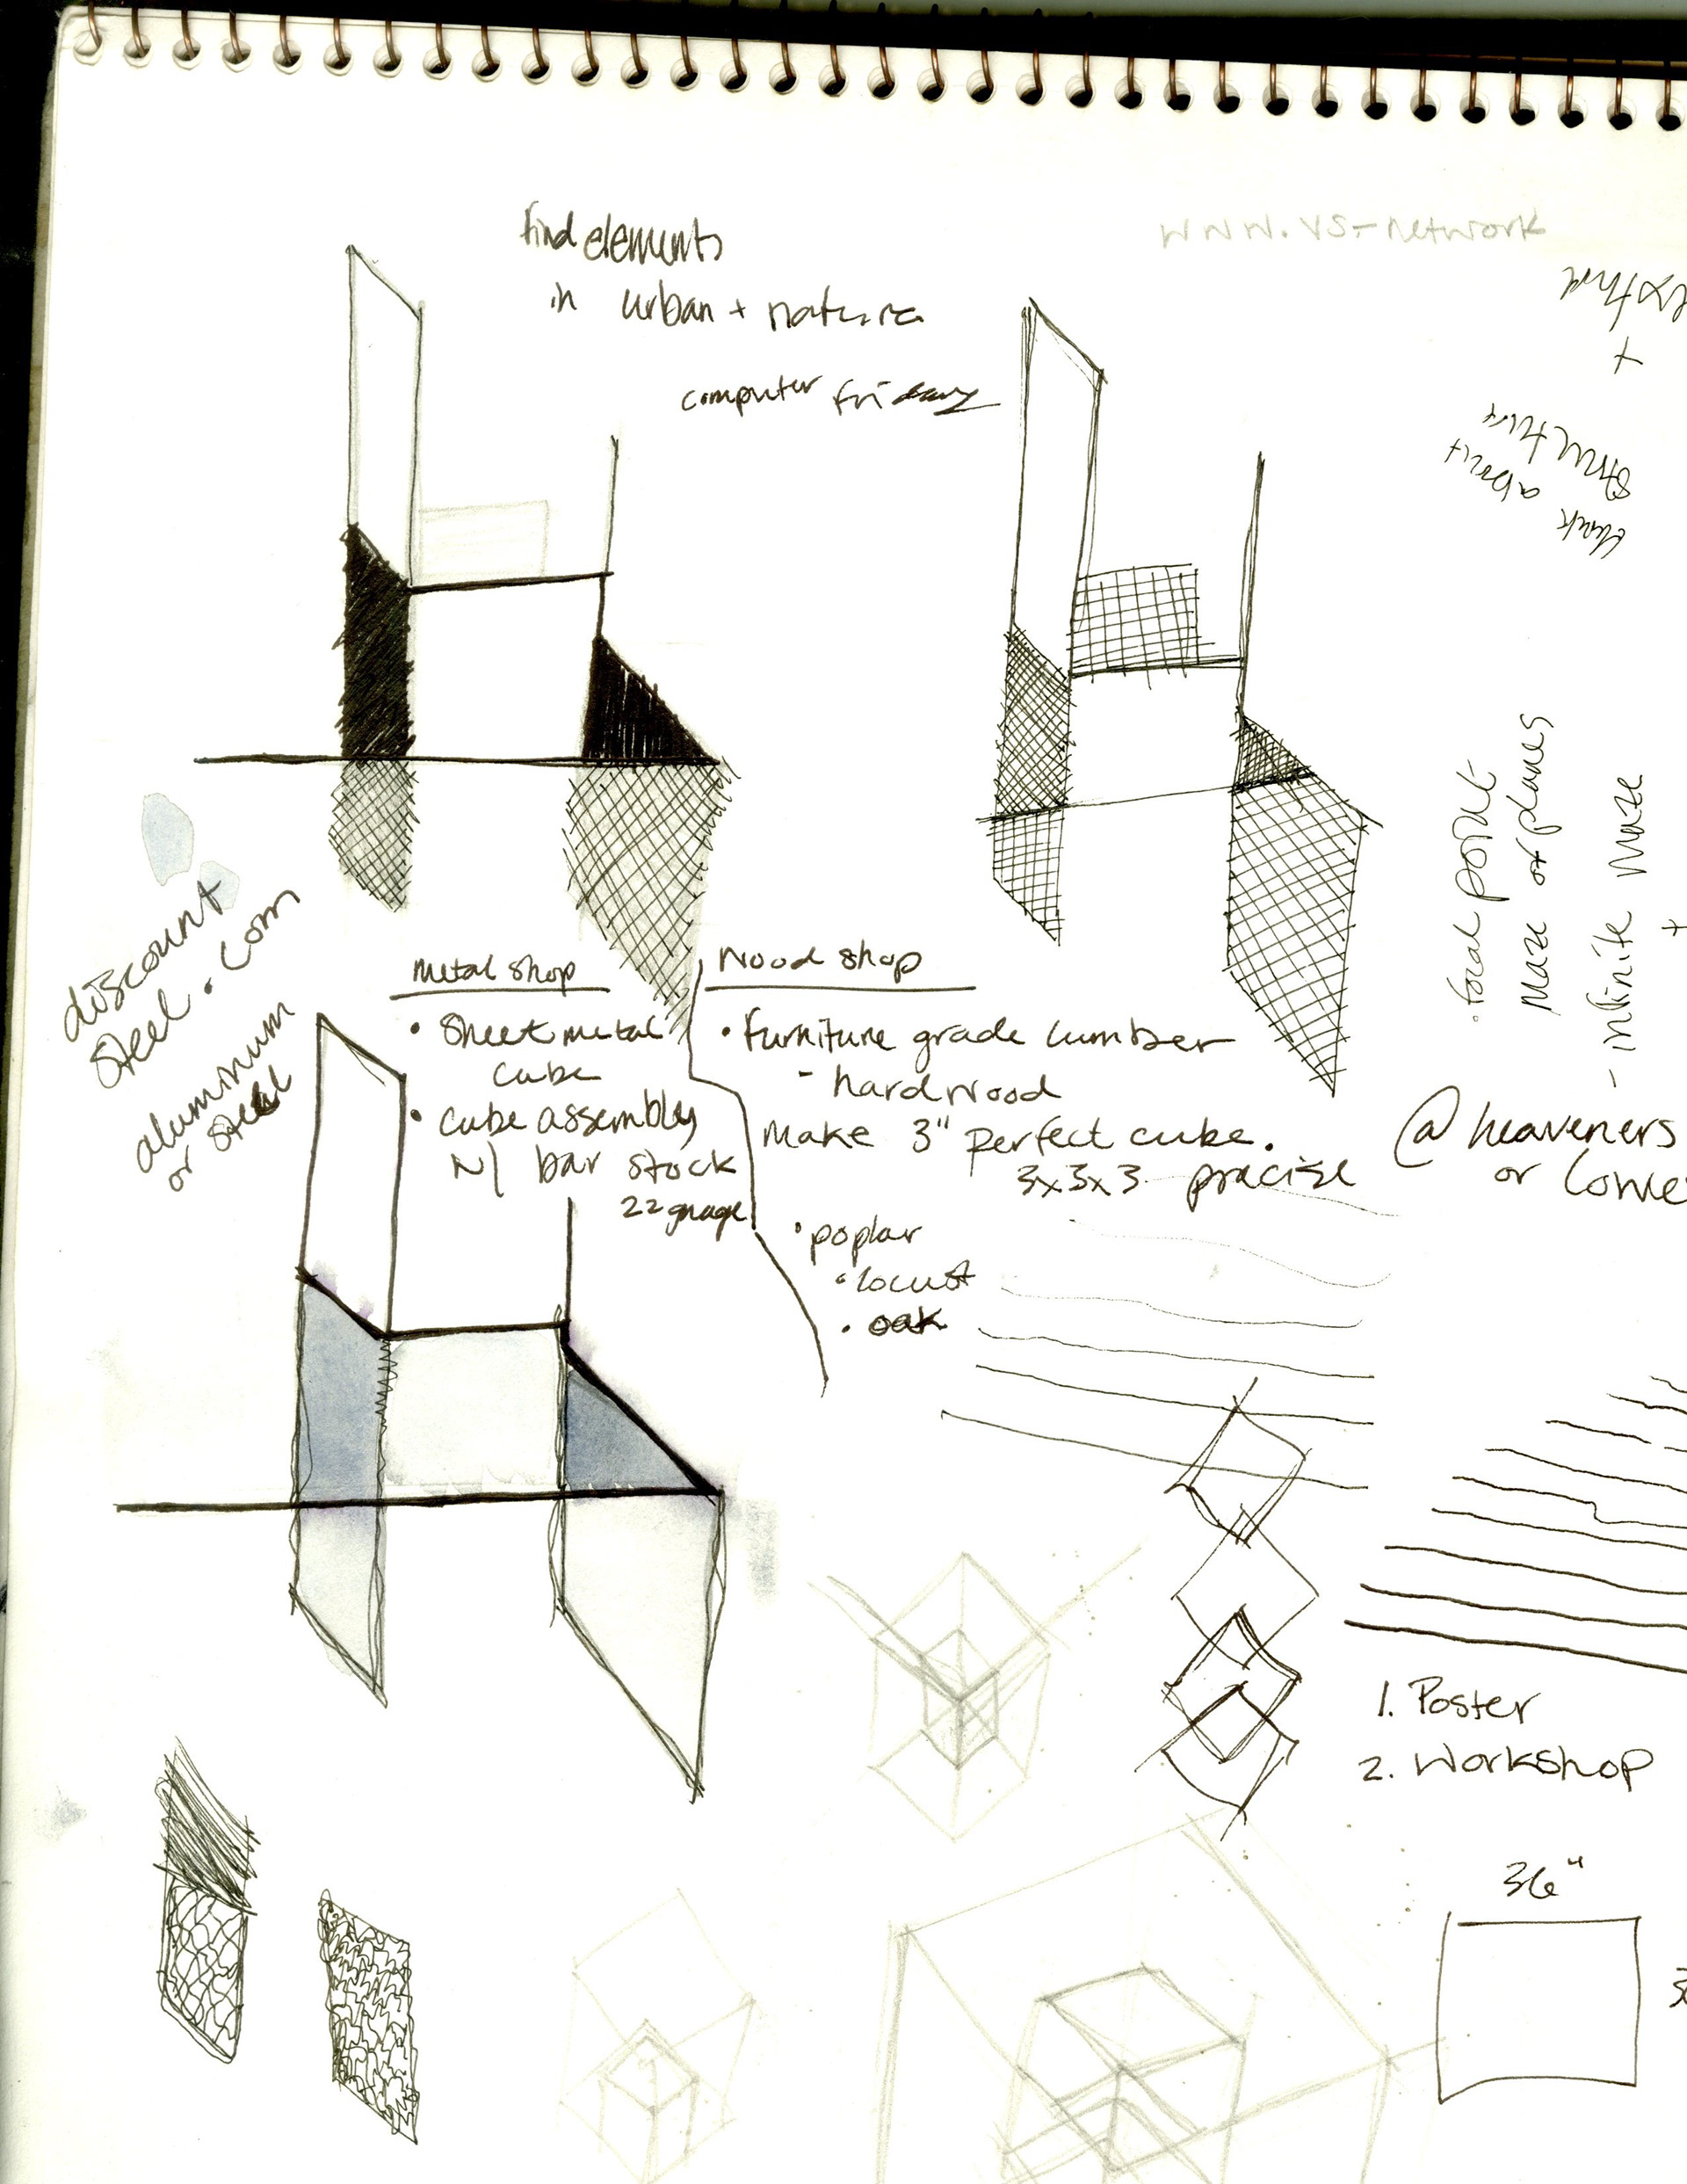 find elements
in urban + nature
computer friday
www.vs-network
texture
+
structure
think about
focal point
maze of planes
- infinite maze
+
discount
steel.com
aluminum
or steel
metal shop
• sheet metal
cube
• cube assembly
w/ bar stock
22 guage
wood shop
• furniture grade lumber
- hardwood
make 3" perfect cube.
3x3x3 precise
@ heaveners
or lowe
• poplar
• locust
• oak
1. Poster
2. workshop
36"